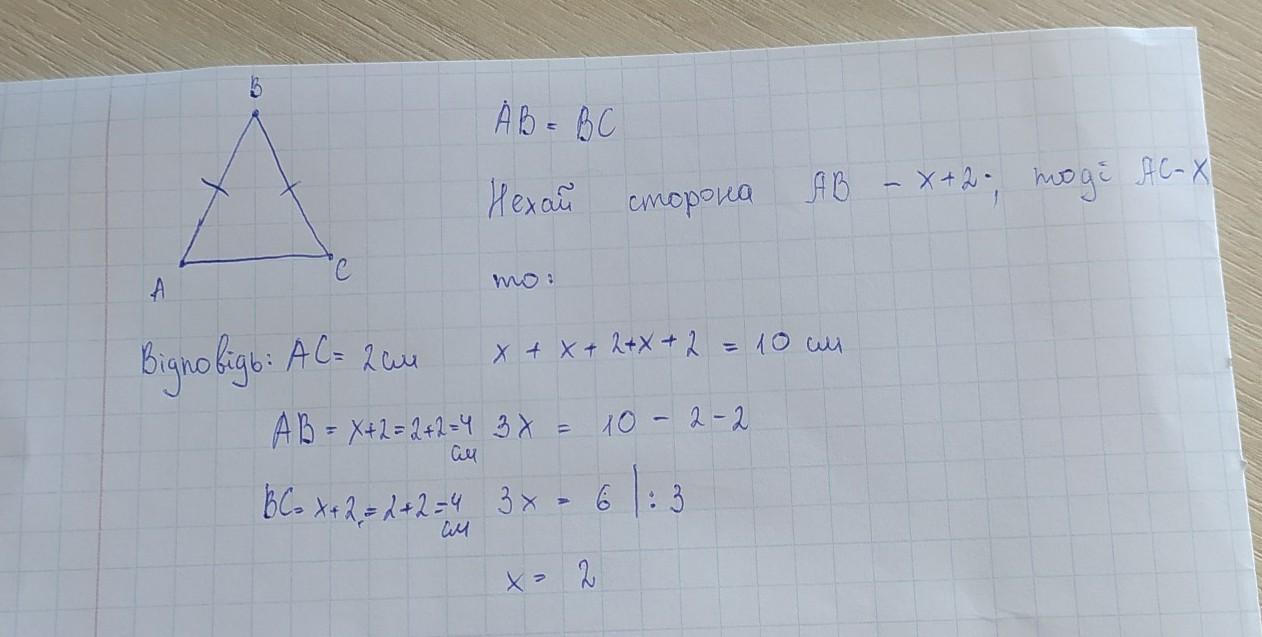 B
A
C
AB = BC
Нехай сторона AB - x+2; тоді AC-X
то:
x + x + 2+x + 2 = 10 см
3x = 10 - 2 - 2
3x = 6 | : 3
x = 2
Відповідь: AC = 2см
AB = x+2=2+2=4
см
BC= x+2,=2+2=4
см